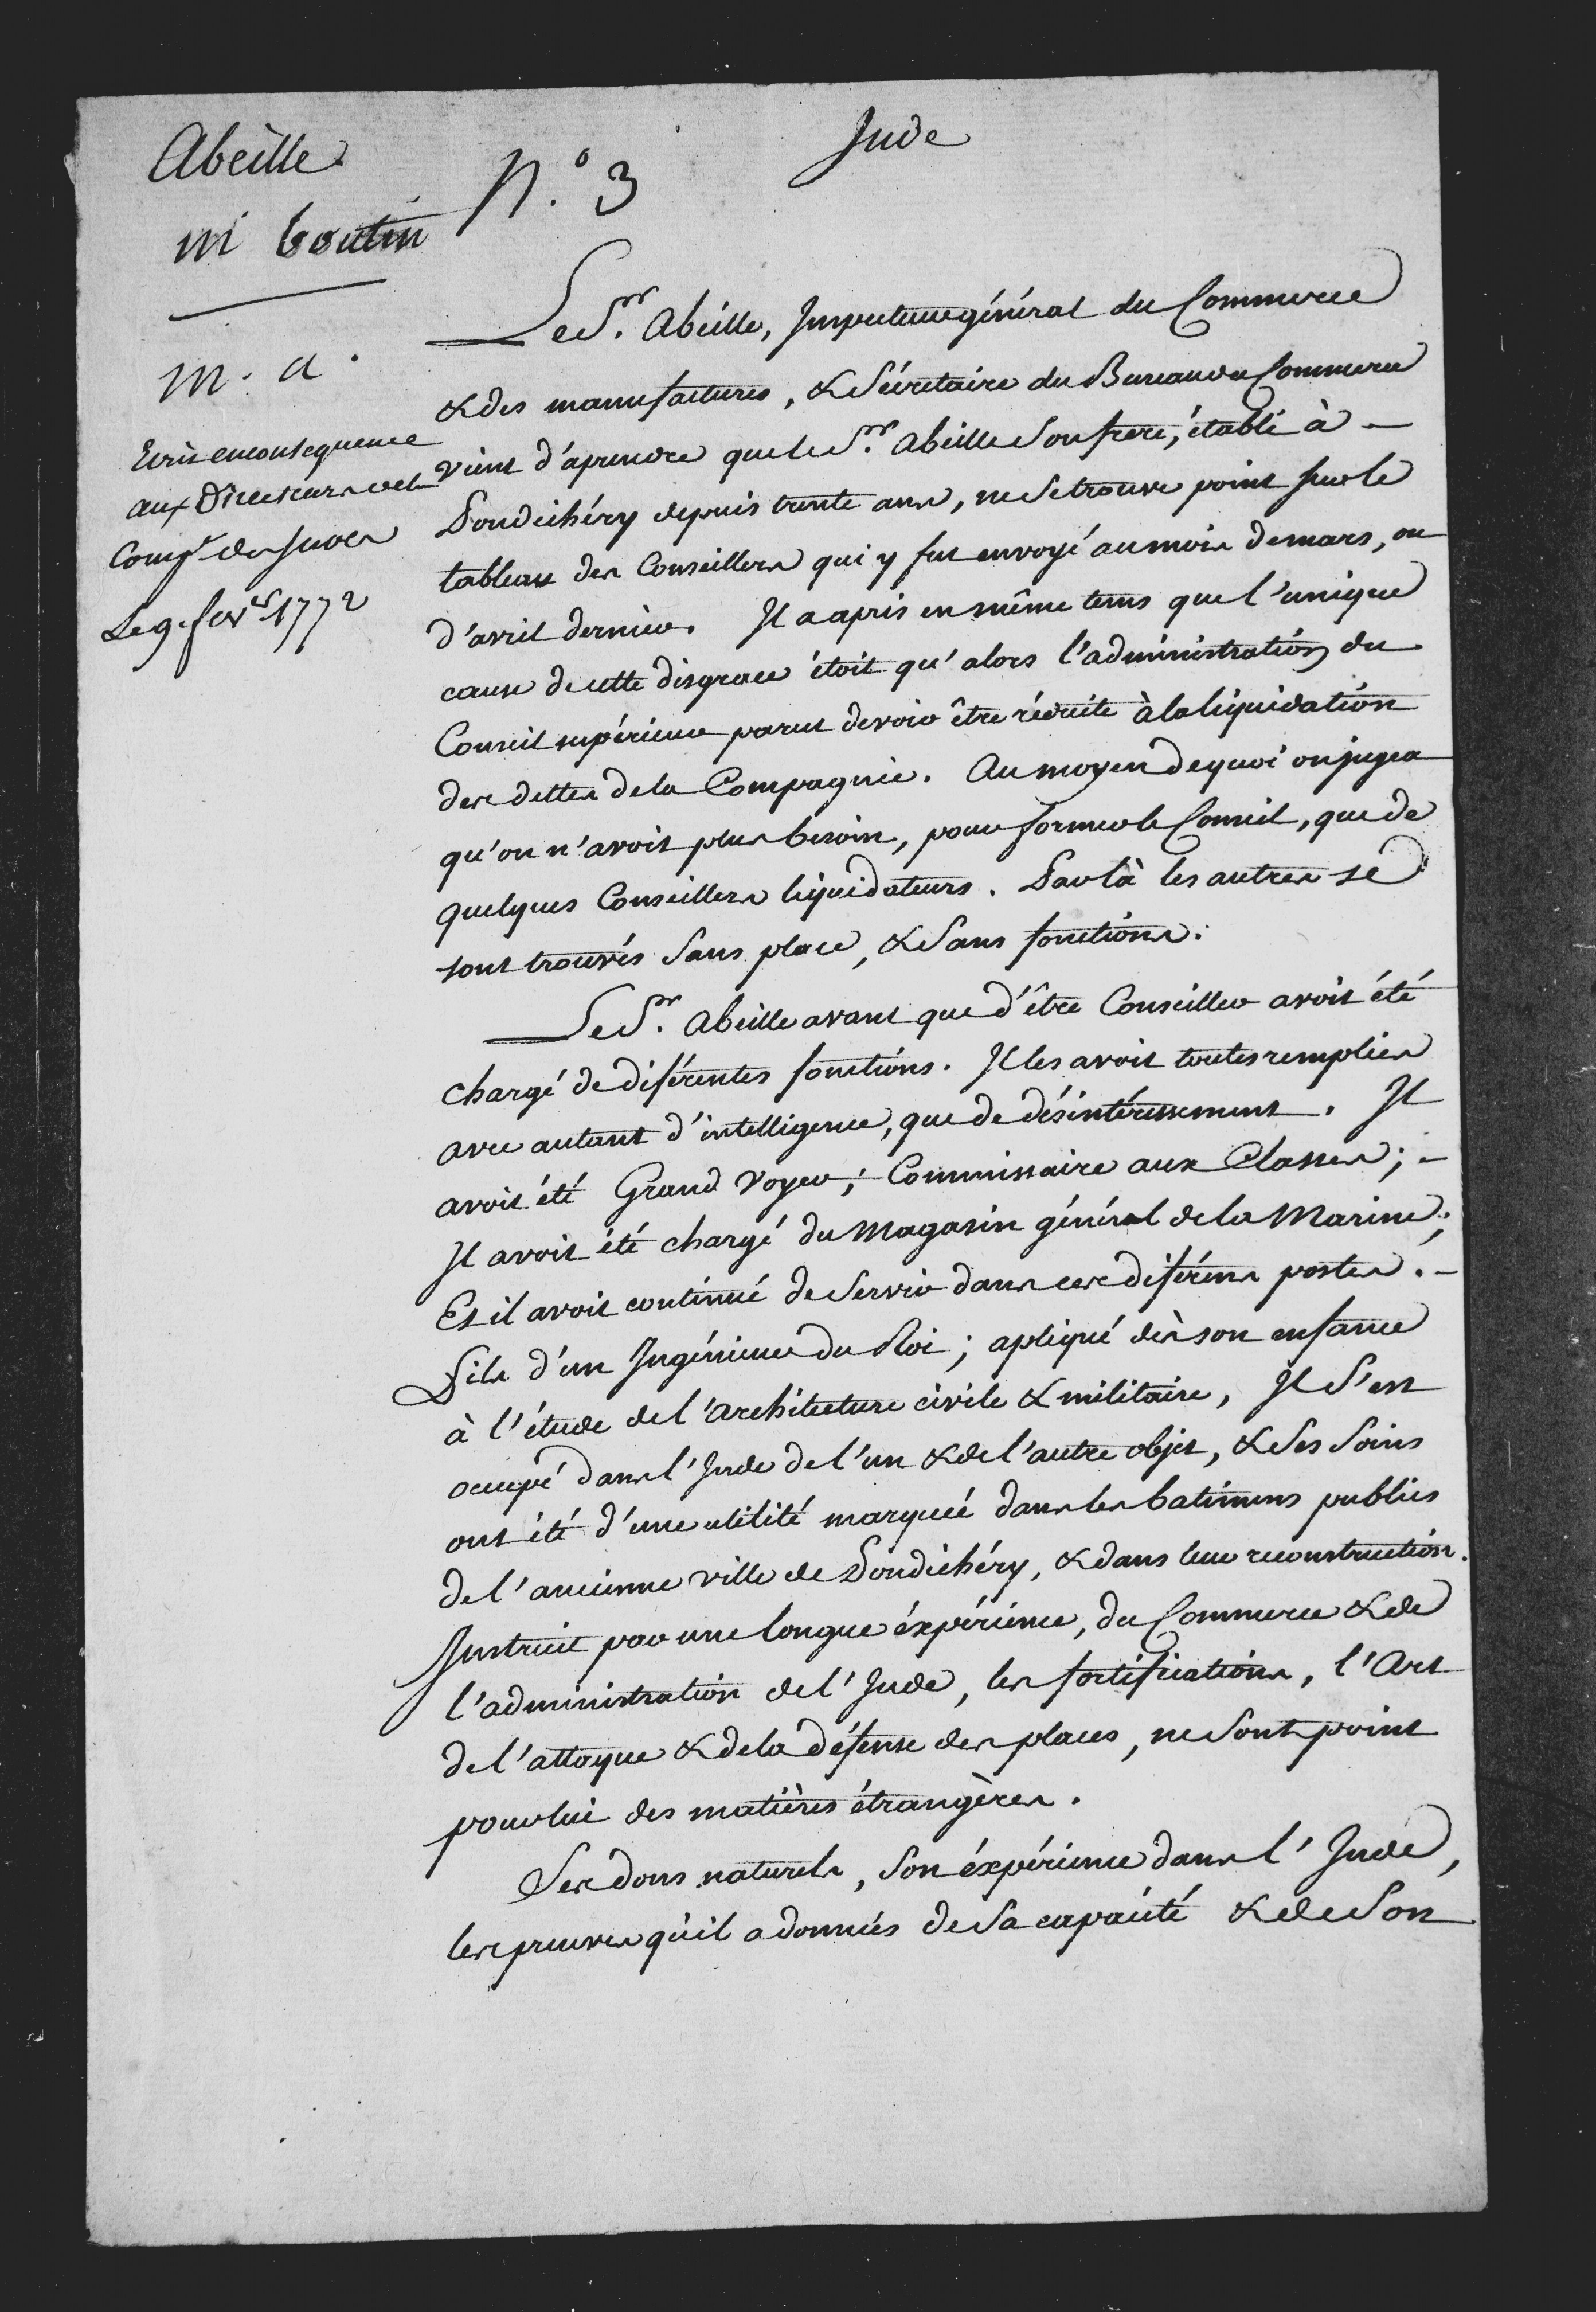 Abeille
Inde
N.° 3
m boutin
m. a.
Ecris en consequence
aux Directeurs de la
Comp.e des Indes
Le 9. fev.er 1772
Le S.r Abeille, Inspecteur général du Commerce
& des manufactures, & Sécrétaire du Bureau du Commerce
vient d'aprendre que le S.r Abeille Son frere, établi à -
Pondichéry depuis trente ans, ne se trouve point sur le
tableau des Conseillers qui y fut envoyé au mois de mars, ou
d'avril dernier. Il a apris en même tems que l'unique
cause de cette disgrace étoit qu'alors l'administration du
Conseil supérieur parut devoir être réduite à la liquidation
des dettes de la Compagnie. Au moyen de quoi on jugea
qu'on n'avoit plus besoin, pour former le Conseil, que de
quelques Conseillers liquidateurs. Par là les autres se
sont trouvés Sans place, & Sans fonctions.
Le S.r Abeille avant que d'être Conseiller avoit été
chargé de diférentes fonctions. Il les avoit toutes remplies
avec autant d'intelligence, que de désintéressement. Il
avoit été Grand Voyer; Commissaire aux Classes; -
Il avoit été chargé du Magasin général de la Marine;
Et il avoit continué de Servir dans ces diférens postes. -
Fils d'un Ingénieur du Roi; apliqué dès son enfance
à l'étude de l'Architecture civile & militaire, Il S'est
occupé dans l'Inde de l'un & de l'autre objet, & Ses Soins
ont été d'une utilité marquée dans les batimens publics
de l'ancienne ville de Pondichéry, & dans leur reconstruction.
Instruit par une longue éxpérience, du Commerce & de
l'administration de l'Inde, les fortifications, l'Art
de l'attaque & de la défense des places, ne Sont point
pour lui des matières étrangères.
Ses dons naturels, Son éxpérience dans l'Inde,
les preuves qu'il a données de Sa capacité & de Son